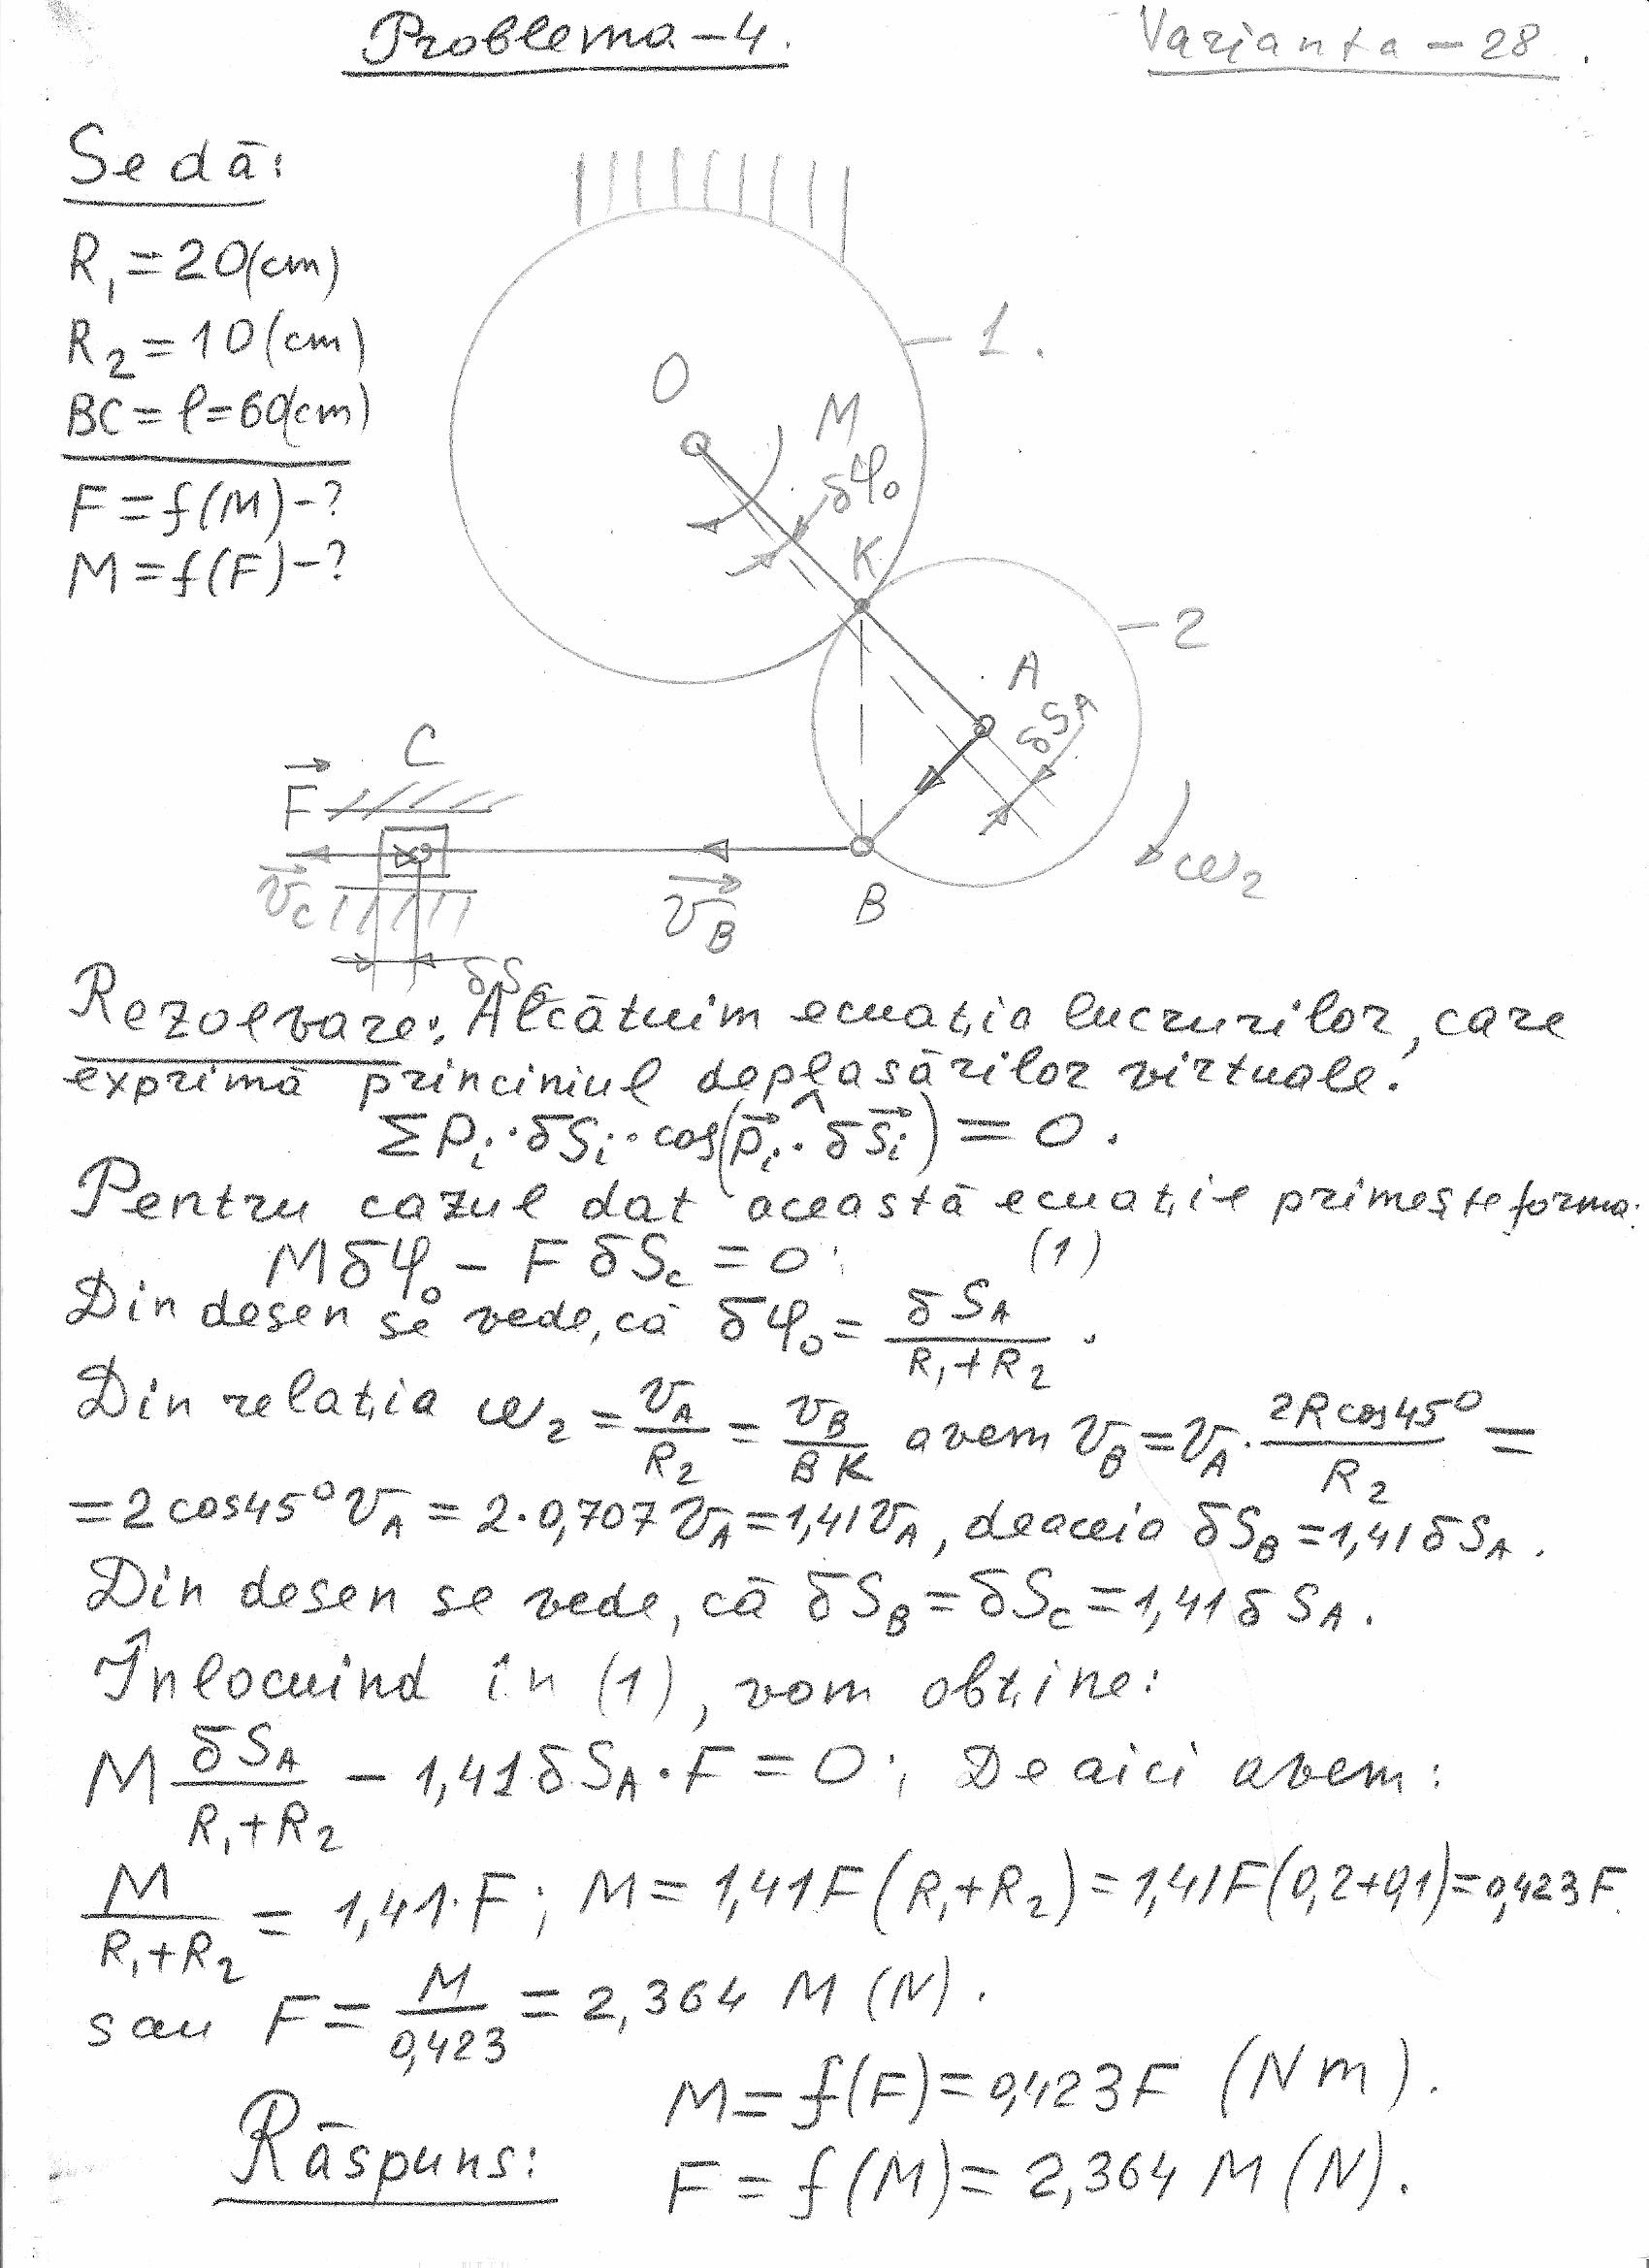 Problema-4.
Varianta-28.
Se dă:
R₁=20(cm)
R₂=10(cm)
BC=l=60(cm)
F=f(M)-?
M=f(F)-?
O
M
δφ₀
K
1.
2
A
δSA
C
F
vC
vB
B
ω₂
δSc
Rezolvare: Alcătuim ecuația lucrurilor, care
exprimă princiniul deplasărilor virtuale.
ΣPi·δSi·cos(pi^·δSi)=0.
Pentru cazul dat această ecuație primește forma:
Mδφ₀-FδSc=0; (1)
Din desen se vede, că δφ₀=δSA/(R₁+R₂).
Din relația ω₂=vA/R₂=vB/BK avem vB=vA·2Rcos45°/R₂=
=2cos45°vA=2·0,707vA=1,41vA, deaceia δSB=1,41δSA.
Din desen se vede, că δSB=δSc=1,41δSA.
Înlocuind în (1), vom obține:
M δSA/(R₁+R₂)-1,41δSA·F=0; De aici avem:
M/(R₁+R₂)=1,41·F; M=1,41F(R₁+R₂)=1,41F(0,2+0,1)=0,423F.
sau F=M/0,423=2,364 M (N).
M=f(F)=0,423F (Nm).
Răspuns:
F=f(M)=2,364 M(N).